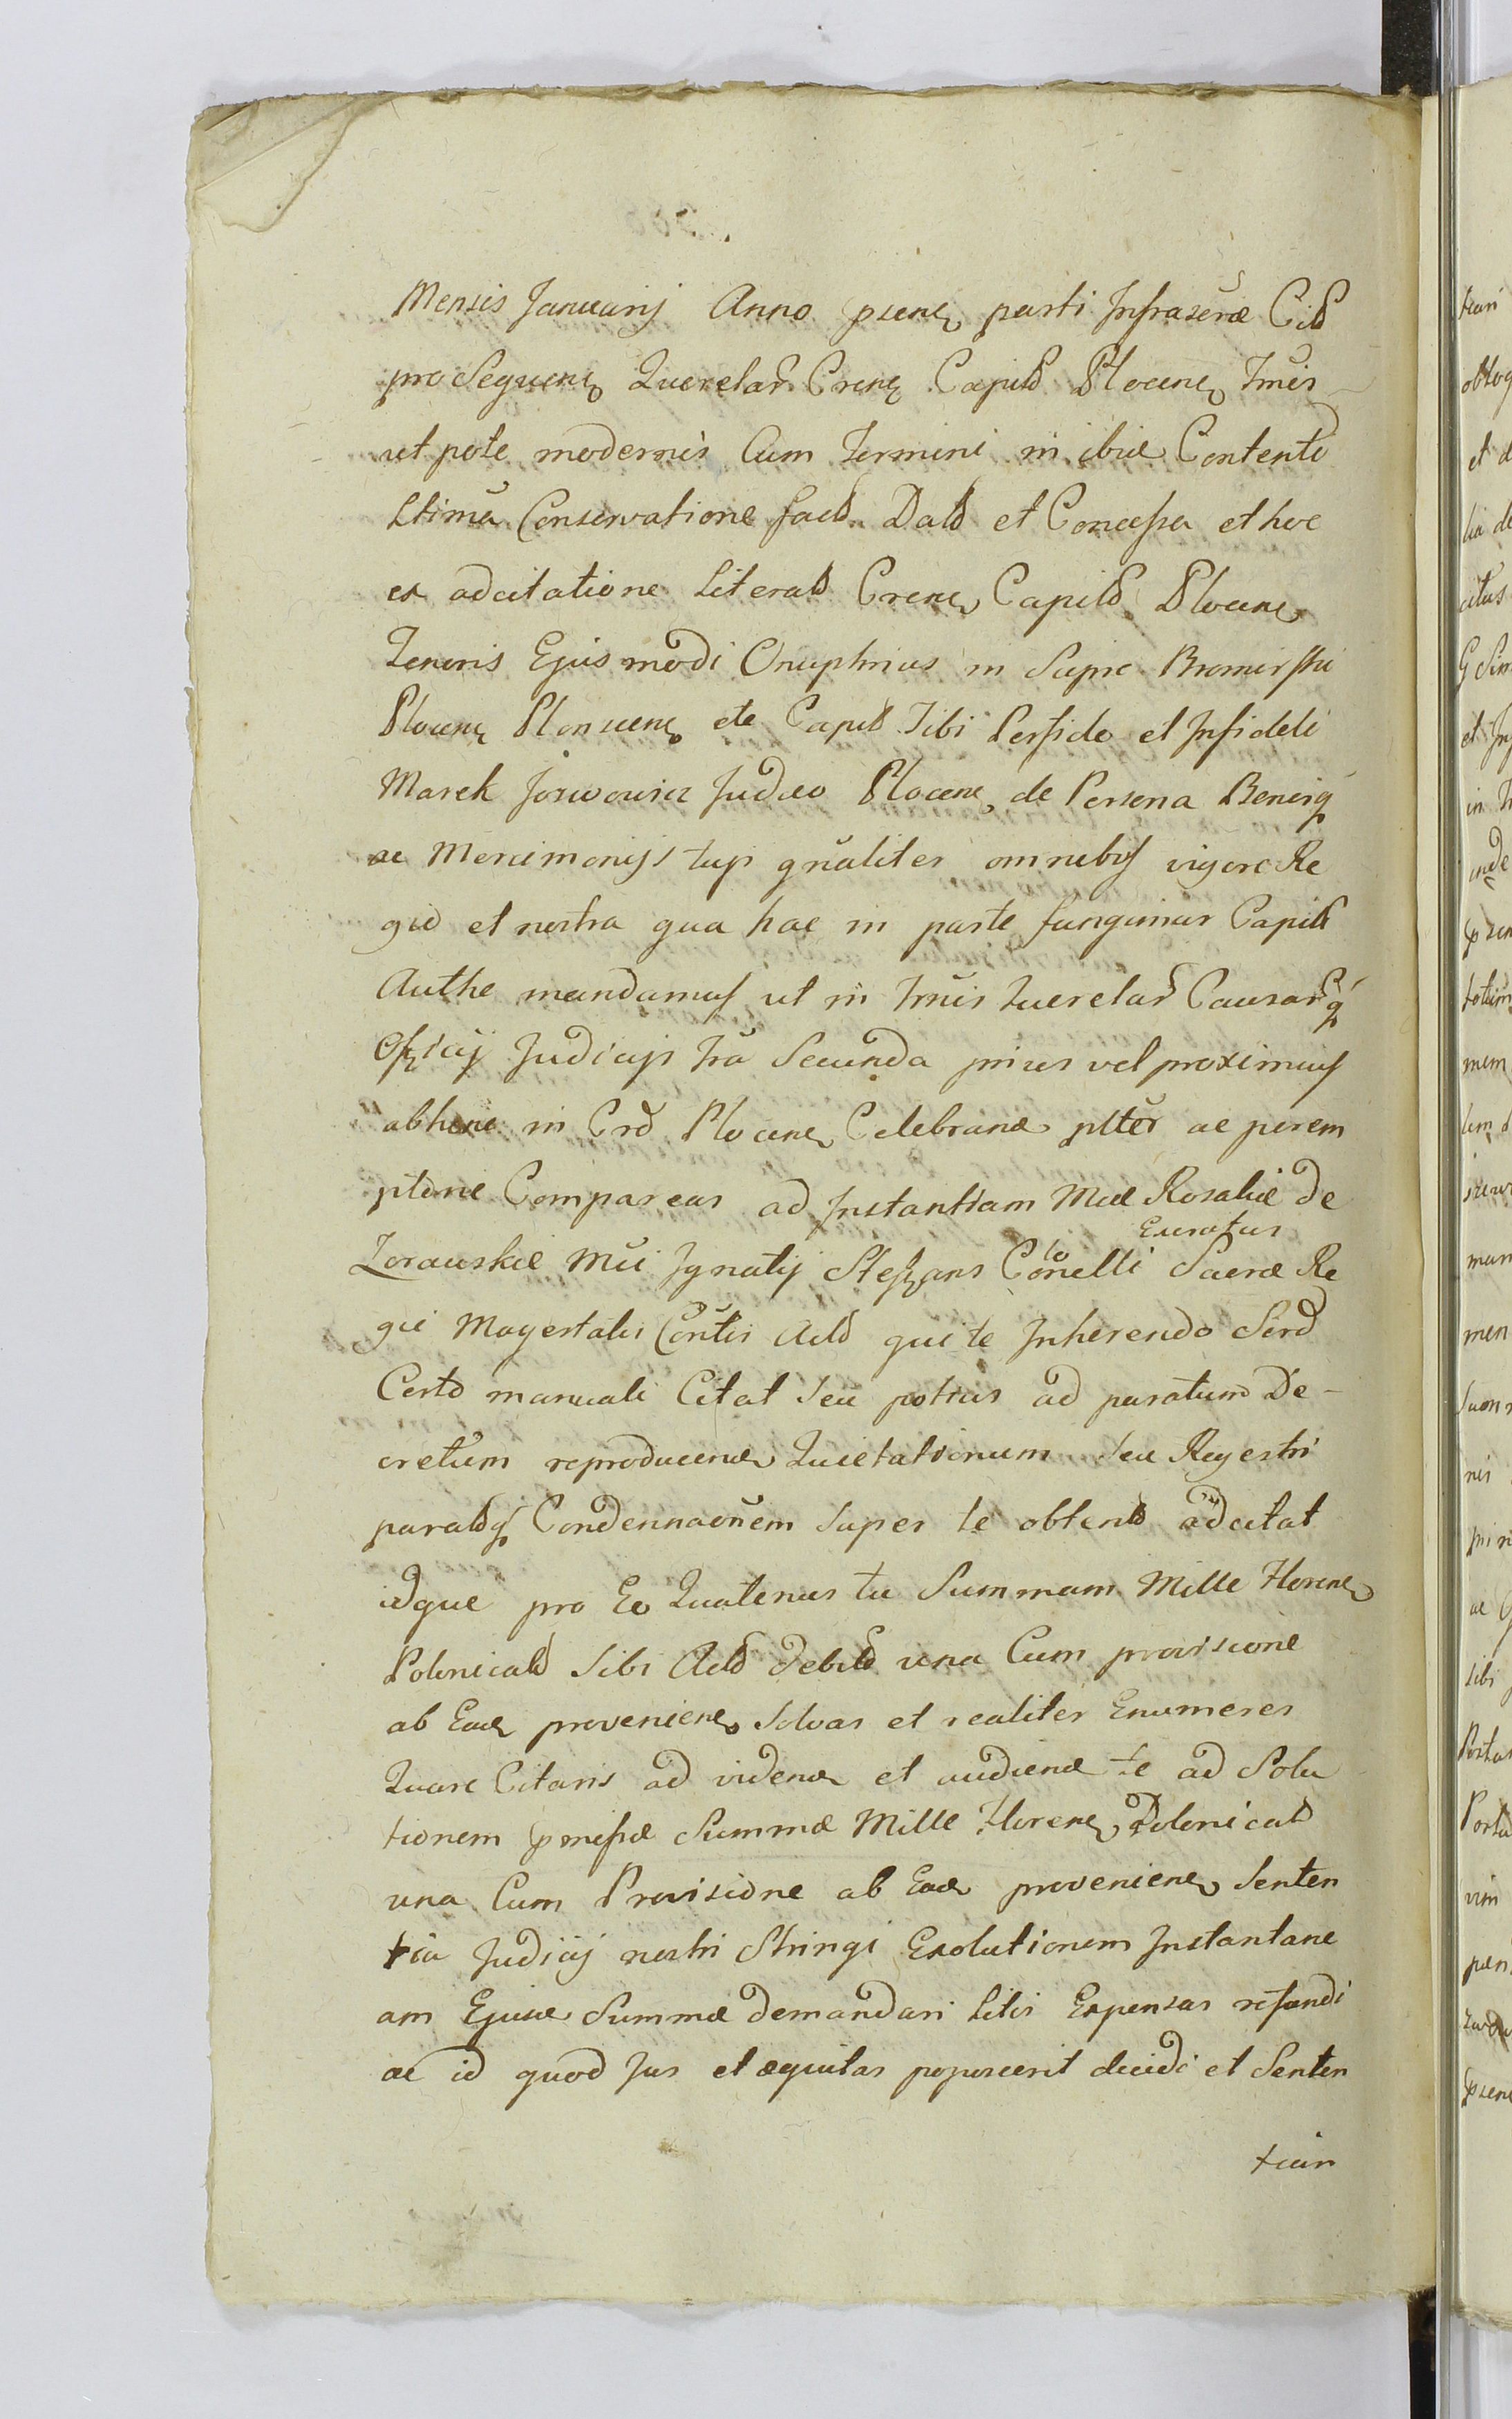 Mensis Januarij Anno psene parti Infrascrae Citt
pro Sequene Querelar Crene Capitt Plocene Tmis
ut pote modernis Cum Termini in ibid Contenti
Ltima Conservatione fact Datt et Concessa et hoc
ex adcitatione Literatt Crene Capitt Plocene
Tenoris Ejusmodi Onuphrius in Supie Bromirski
Plocene Plonscene etc Captt Tibi Perfido et Infideli
Marek Jozwowicz Judaeo Plocene de Persona Bonisq
ac Mercimonijs tuis gnaliter omnibus vigore Re
gia et nostra qua hac in parte fungimur Capitt
Authe mandamus ut in Tmis Querelar Causarq
Officij Judicijs Fra Secunda prius vel proximius
abhinc in Crd Plocene Celebrand plter ac perem
ptorie Compareas ad Instantiam Mcae Rosaliae de
Zorawskie Mci Ignatij Steffans Conelli Sacrae Re
Exerctus
giae Mayestatis Contis Actt qui te Inherendo Scrd
Certo manuali Citat seu potius ad paratum De-
cretum reproducend Quietationum seu Reyestri
parattq Condemnaonem super te obtentt adcitat
idque pro Eo Quatenus tu Summam Mille Florene
Polonicatt sibi Actt debitt una Cum provisione
ab Ead proveniene solvas et realiter Enumeres
Quare Citaris ad vidend et audiend te ad Solu
tionem pmissae Summae Mille Florene Polonicatt
una Cum Provisione ab Ead proveniene Senten
tia Judicij nostri Stringi Exolutionem Instantane
am Ejusd Summae demandari Litis Expensas refundi
ac id quod Jus et aequitas poposcerit decidi et Senten
tiari